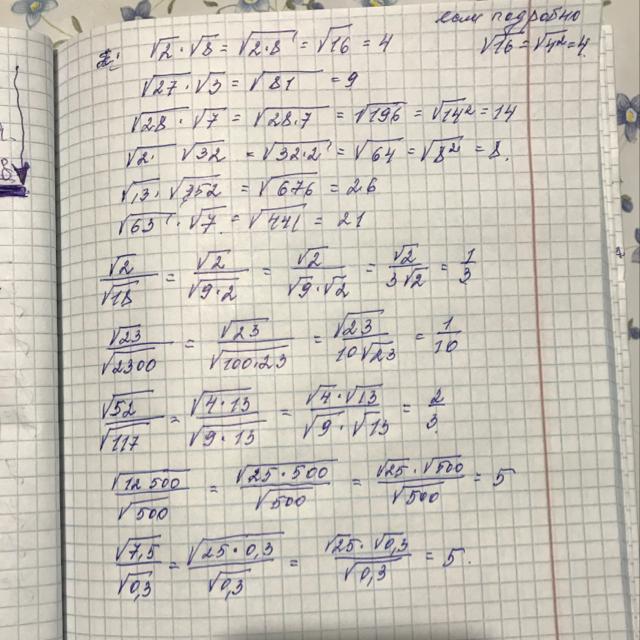 если подробно
√16 = √4² = 4
√2 · √8 = √2·8 = √16 = 4
√27 · √3 = √81 = 9
√28 · √7 = √28·7 = √196 = √14² = 14
√2 · √32 = √32·2 = √64 = √8² = 8.
√13 · √52 = √676 = 26
√63 · √7 = √441 = 21
√2/√18 = √2/√9·2 = √2/√9·√2 = √2/3√2 = 1/3
√23/√2300 = √23/√100·23 = √23/10√23 = 1/10
√52/√117 = √4·13/√9·13 = √4·√13/√9·√13 = 2/3
√12500/√500 = √25·500/√500 = √25·√500/√500 = 5
√7,5/√0,3 = √25·0,3/√0,3 = √25·√0,3/√0,3 = 5.